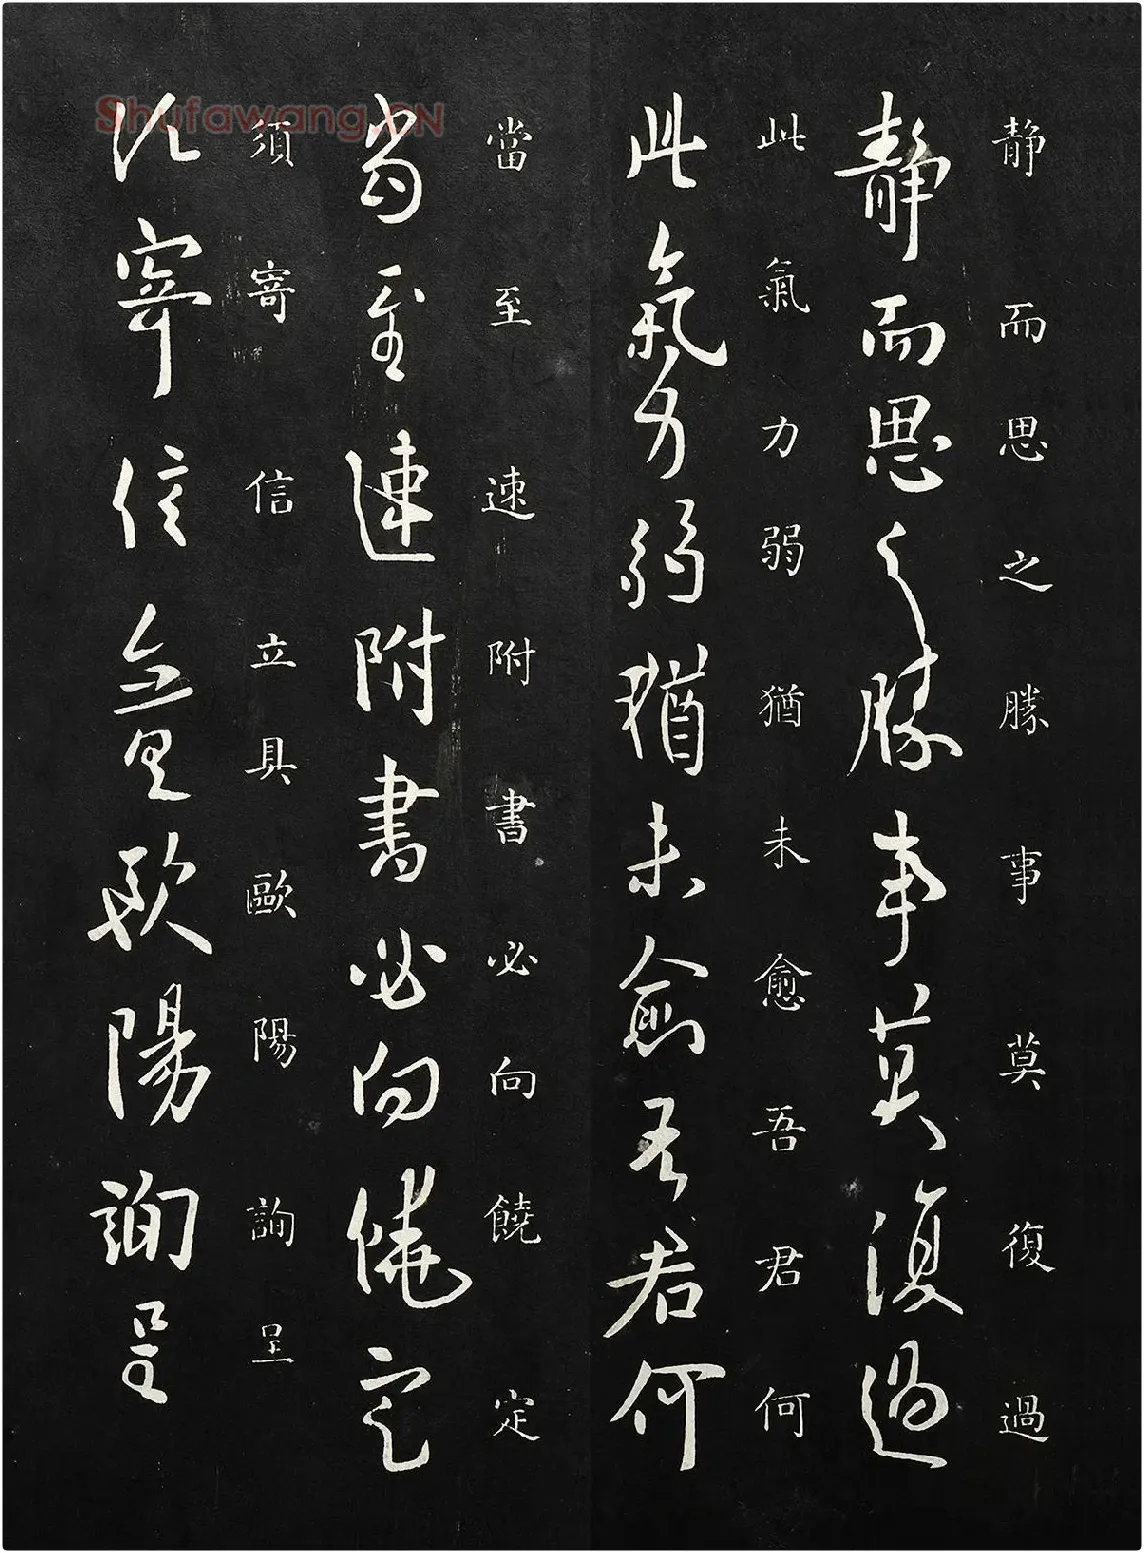 静而思之勝事莫復過
静而思之勝事莫復過
此氣力弱猶未愈吾君何
此氣力弱猶未愈吾君何
當至速附書必向饒定
當至速附書必向饒定
須寄信立具歐陽詢呈
須寄信立具歐陽詢呈
Shufawang.CN